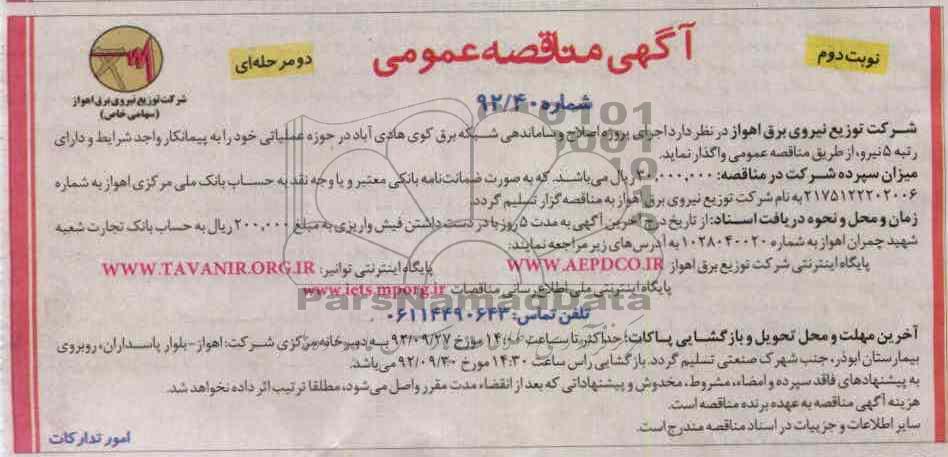 نوبت دوم
آگهی مناقصه عمومی
دو مرحله‌ای
شماره ۹۲/۴۰
شرکت توزیع نیروی برق اهواز
(سهامی خاص)
شرکت توزیع نیروی برق اهواز در نظر دارد اجرای پروژه اصلاح و ساماندهی شبکه برق کوی هادی آباد در حوزه عملیاتی خود را به پیمانکار واجد شرایط و دارای
رتبه ۵ نیرو، از طریق مناقصه عمومی واگذار نماید.
میزان سپرده شرکت در مناقصه: ۳۰,۰۰۰,۰۰۰ ریال می‌باشد. که به صورت ضمانت‌نامه بانکی معتبر و یا وجه نقد به حساب بانک ملی مرکزی اهواز به شماره
۲۱۷۵۱۲۲۲۰۲۰۰۶ به نام شرکت توزیع نیروی برق اهواز به مناقصه‌گزار تسلیم گردد.
زمان و محل و نحوه دریافت اسناد: از تاریخ درج آخرین آگهی به مدت ۵ روز با در دست داشتن فیش واریزی به مبلغ ۲۰۰,۰۰۰ ریال به حساب بانک تجارت شعبه
شهید چمران اهواز به شماره ۱۰۲۸۰۴۰۰۲۰ به آدرس‌های زیر مراجعه نمایند:
پایگاه اینترنتی شرکت توزیع برق اهواز WWW.AEPDCO.IR پایگاه اینترنتی توانیر: WWW.TAVANIR.ORG.IR
پایگاه اینترنتی ملی اطلاع رسانی مناقصات www.iets.mporg.ir
ParsNamadData
تلفن تماس: ۰۶۱۱۴۴۹۰۶۴۳
آخرین مهلت و محل تحویل و بازگشایی پاکات: حداکثر تا ساعت ۱۴/۰۰ مورخ ۹۲/۰۹/۲۷ به دبیرخانه مرکزی شرکت: اهواز- بلوار پاسداران، روبروی
بیمارستان ابوذر، جنب شهرک صنعتی تسلیم گردد. بازگشایی راس ساعت ۱۴:۳۰ مورخ ۹۲/۰۹/۳۰ می‌باشد.
به پیشنهادهای فاقد سپرده و امضاء، مشروط، مخدوش و پیشنهاداتی که بعد از انقضاء مدت مقرر واصل می‌شود، مطلقا ترتیب اثر داده نخواهد شد.
هزینه آگهی مناقصه به عهده برنده مناقصه است.
سایر اطلاعات و جزییات در اسناد مناقصه مندرج است.
امور تدارکات